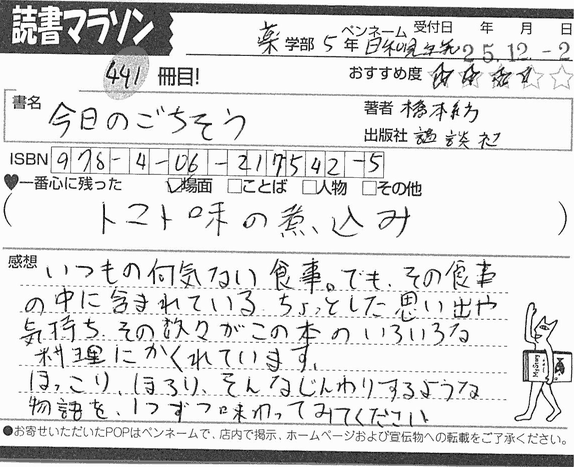 読書マラソン
ペンネーム 受付日 年 月 日
薬 学部 5 年 25.12.-2
441 冊目!
おすすめ度
書名
今日のごちそう
著者 橋本紡
出版社 講談社
ISBN 978-4-06-217542-5
♥一番心に残った ☑場面 □ことば □人物 □その他
(トマト味の煮込み)
感想
いつもの何気ない食事。でも、その食事
の中に含まれている ちょっとした思い出や
気持ち、その数々がこの本のいろいろな
料理にかくれています。
ほっこり、ほろり、そんなじんわりするような
物語を、1つずつ味わってみてください
●お寄せいただいたPOPはペンネームで、店内で掲示、ホームページおよび宣伝物への転載をご了承ください。